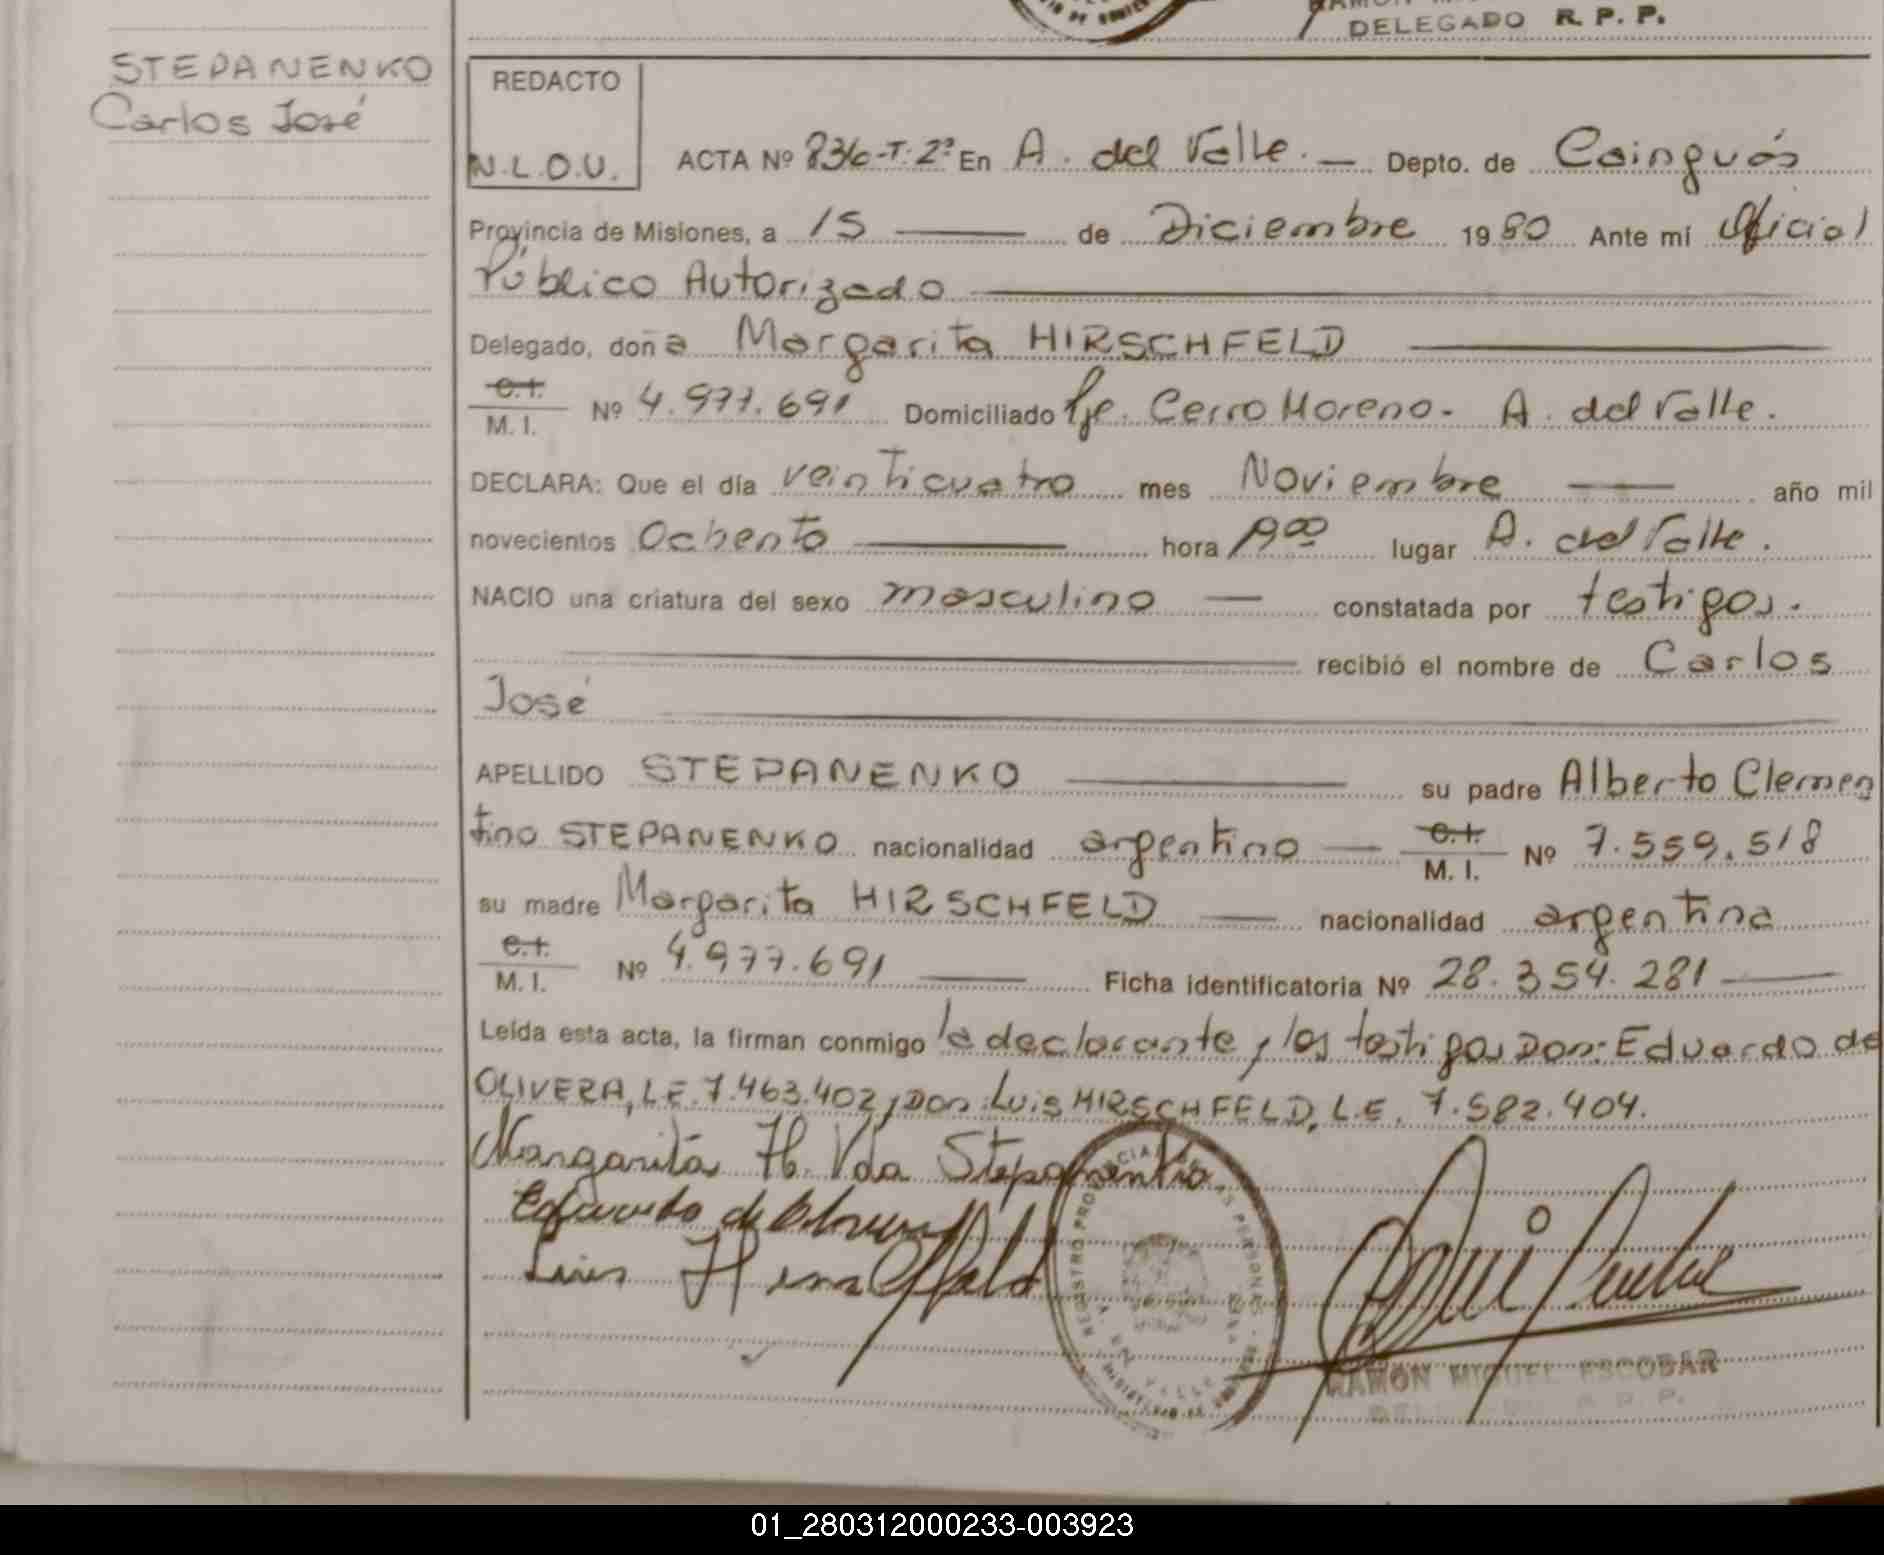 DELEGADO R. P. P.
STEPANENKO
Carlos José
REDACTO
N.L.O.U.
ACTA Nº 836-T:2º En A. del Valle. Depto. de Cainguás
Provincia de Misiones, a 15 de Diciembre 1980 Ante mí Oficial
Público Autorizado
Delegado, doña Margarita HIRSCHFELD
C.I.
M. I. Nº 4.977.691 Domiciliado Pje. Cerro Moreno. A. del Valle.
DECLARA: Que el día veinticuatro mes Noviembre año mil
novecientos Ochenta hora 19⁰⁰ lugar A. del Valle.
NACIO una criatura del sexo masculino constatada por testigos.
recibió el nombre de Carlos
José
APELLIDO STEPANENKO su padre Alberto Clemen
tino STEPANENKO nacionalidad argentino C.I. M. I. Nº 7.559.518
su madre Margarita HIRSCHFELD nacionalidad argentina
C.I.
M. I. Nº 4.977.691 Ficha identificatoria Nº 28.354.281
Leída esta acta, la firman conmigo la declarante, los testigos Don: Eduardo de
OLIVERA, L.E. 7.463.402, Don: Luis HIRSCHFELD, L.E. 7.582.404.
Margarita H. Vda Stepanenko
Eduardo de Olivera
Luis Hirschfeld
REGISTRO PROVINCIAL DE LAS PERSONAS
RAMON MIGUEL ESCOBAR
DELEGADO R. P. P.
01_280312000233-003923